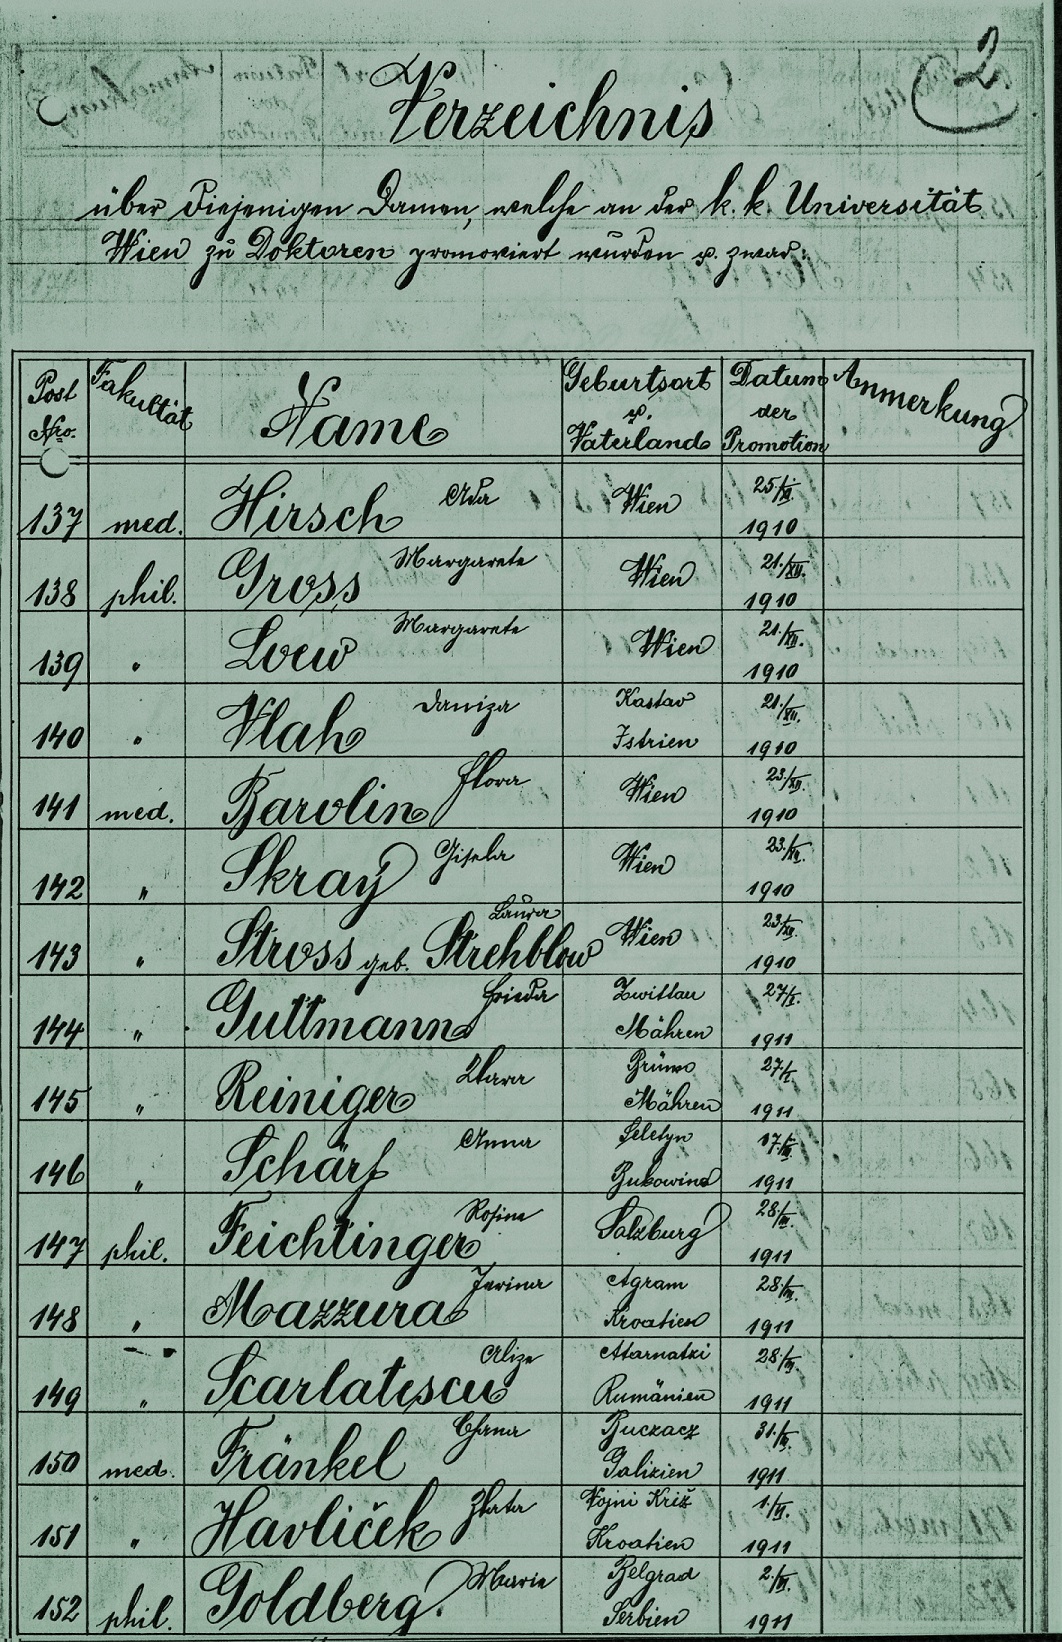 2.
Verzeichnis
über diejenigen Damen, welche an der k. k. Universität
Wien zu Doktoren promoviert wurden u. zwar:
Post Nro. Fakultät Name Geburtsort u. Vaterland Datum der Promotion Anmerkung
137 med. Hirsch Ada Wien 25./XI. 1910
138 phil. Gross Margarete Wien 21./XII. 1910
139 " Loew Margarete Wien 21./XII. 1910
140 " Vlah Daniza Kastav Istrien 21./XII. 1910
141 med. Barolin Flora Wien 23./XII. 1910
142 " Skray Gisela Wien 23./XII. 1910
143 " Stross geb. Strehblow Laura Wien 23./XII. 1910
144 " Guttmann Frieda Zwittau Mähren 27./I. 1911
145 " Reiniger Klara Brünn Mähren 27./I. 1911
146 " Schärf Anna Seletyn Bukowina 17./III. 1911
147 phil. Feichtinger Rosina Salzburg 28./III. 1911
148 " Mazzura Jerina Agram Kroatien 28./III. 1911
149 " Scarlatescu Alize Rumänien 28./III. 1911
150 med. Fränkel Chana Buczacz Galizien 31./III. 1911
151 " Havlíček Zlata Vojni Križ Kroatien 1./VI. 1911
152 phil. Goldberg. Marie Belgrad Serbien 2./VI. 1911